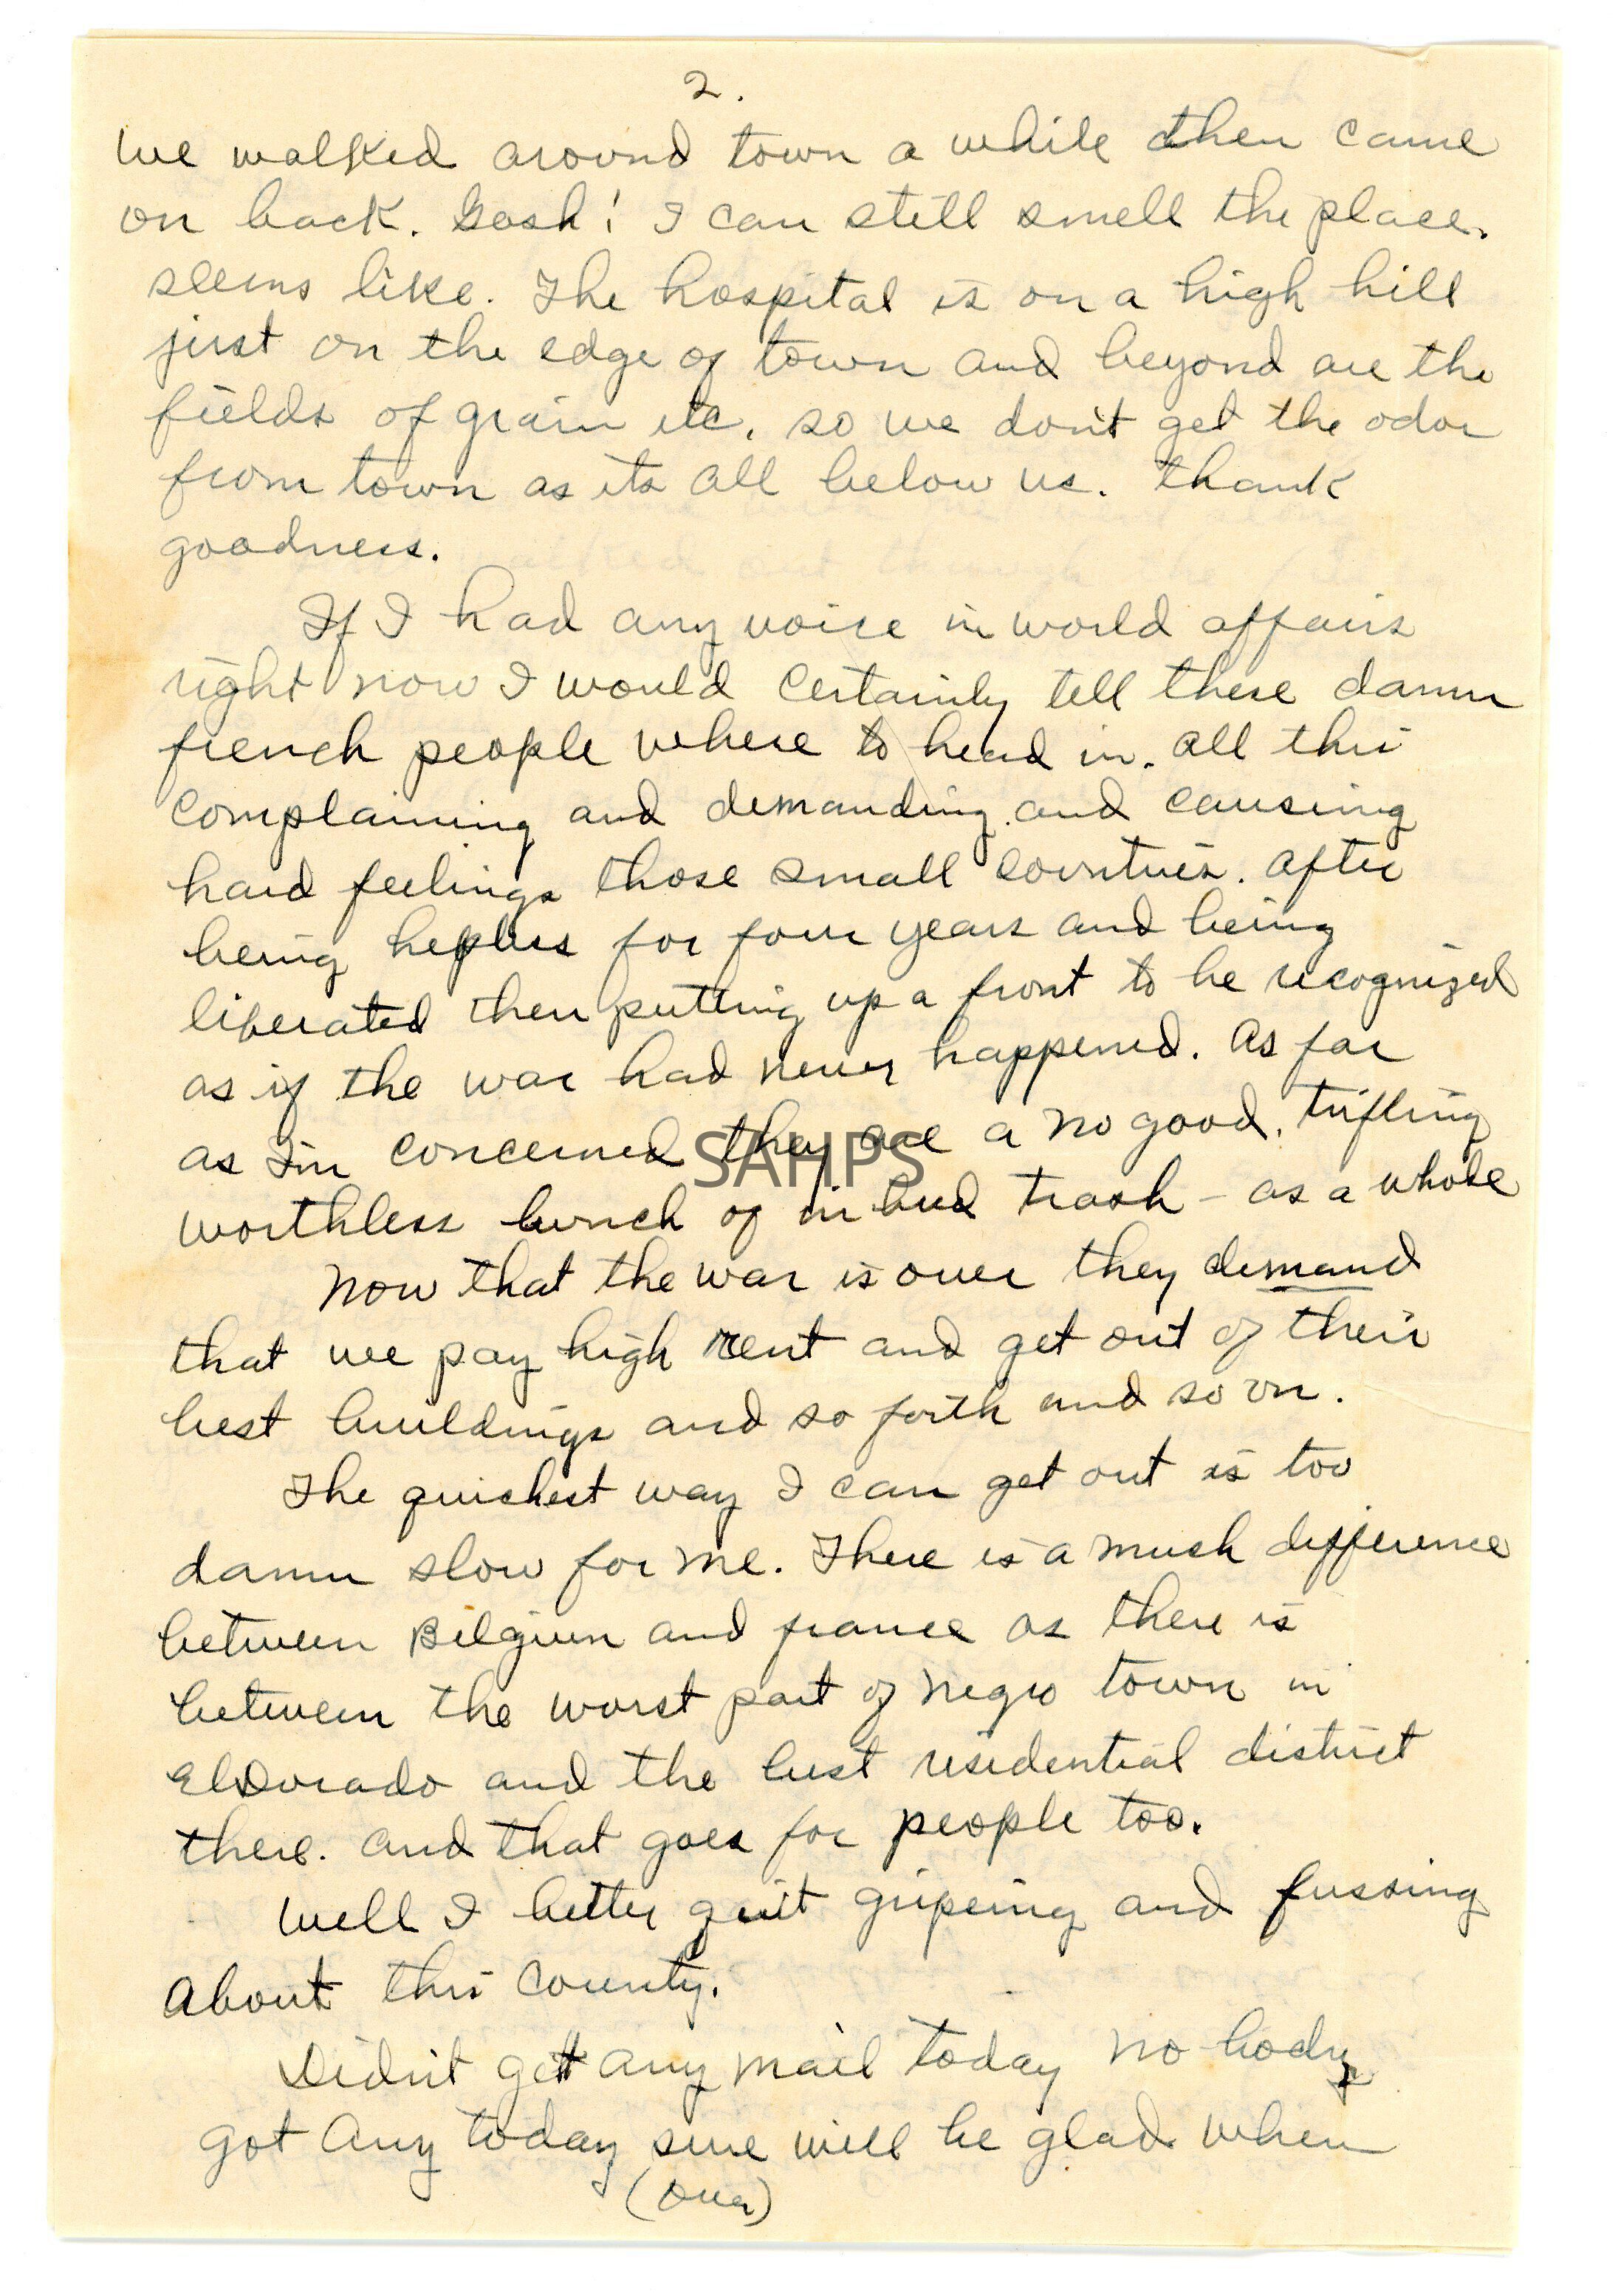 2.
We walked around town a while then came
on back. Gosh! I can still smell the place.
seems like. The hospital is on a high hill
just on the edge of town and beyond are the
fields of grain etc. so we don't get the odor
from town as its all below us. thank
goodness.
If I had any voice in world affairs
right now I would certainly tell these damn
french people where to head in. all this
complaining and demanding and causing
hard feelings those small countries. after
being hepless for four years and being
liberated then putting up a front to be recognized
as if the war had never happened. As far
as I'm concerned they are a no good, trifling
SAHPS
worthless bunch of in bred trash - as a whole
Now that the war is over they demand
that we pay high rent and get out of their
best buildings and so forth and so on.
The quickest way I can get out is too
damn slow for me. There is a much difference
between Belgium and france as there is
between the worst part of negro town in
ElDorado and the best residential district
there. and that goes for people too.
Well I better quit gripeing and fussing
about this county.
Didn't get any mail today no body
got any today sure will be glad when
(over)